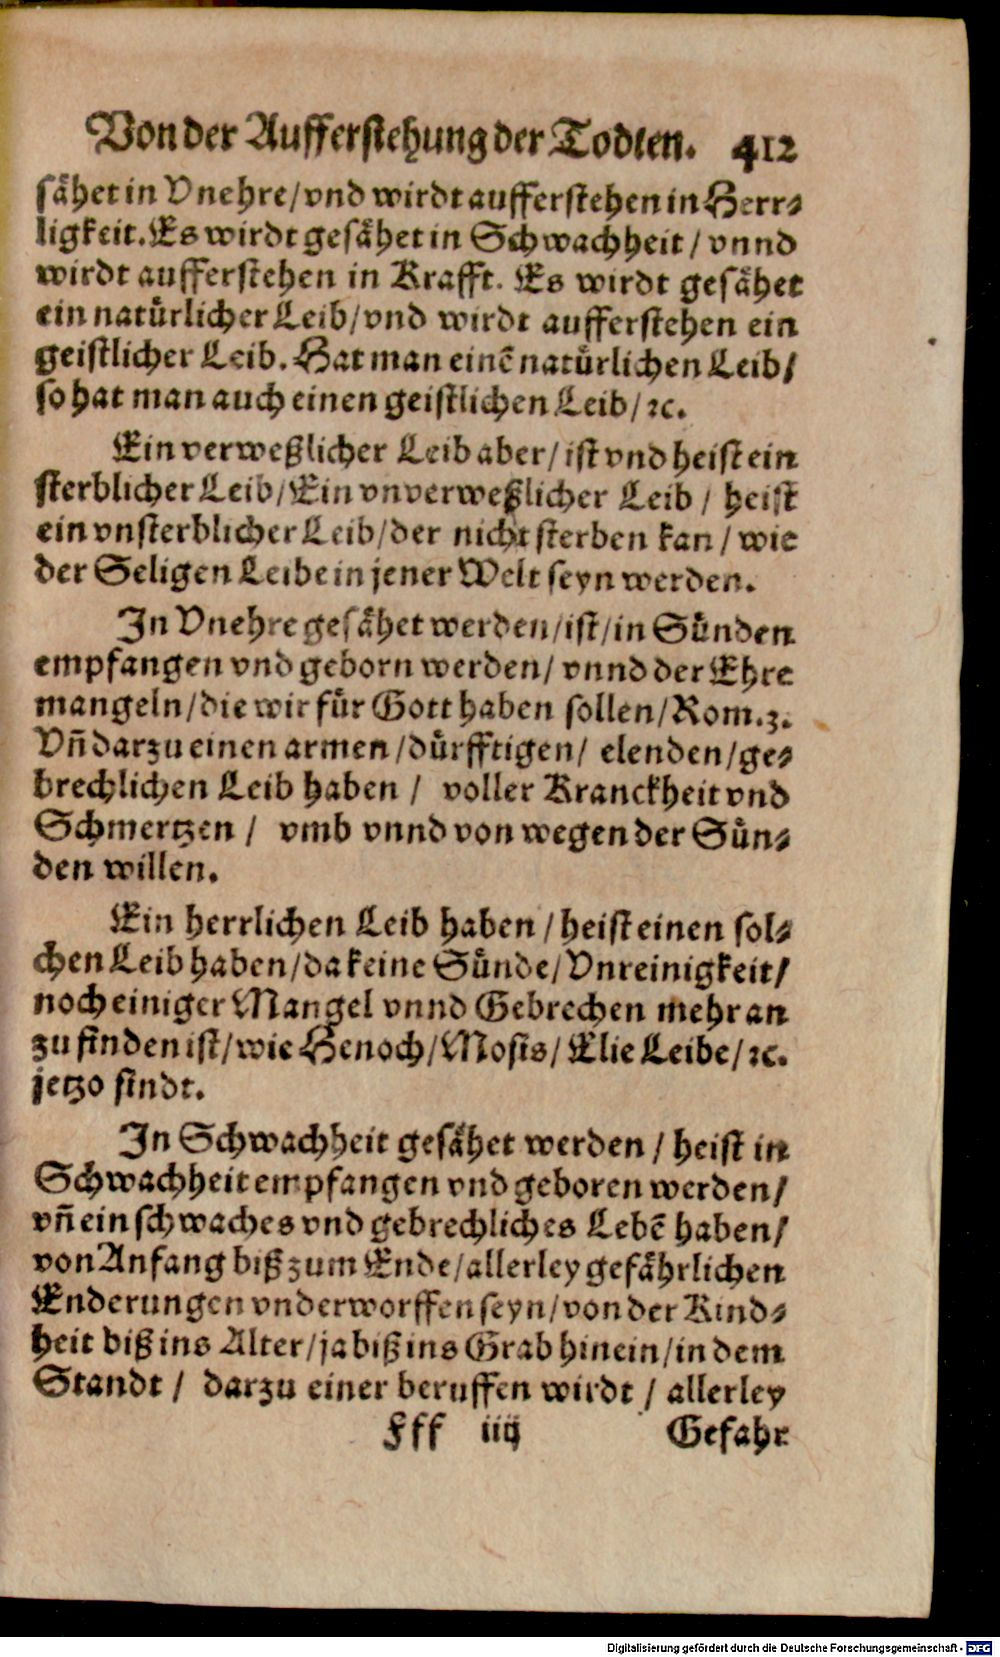 Von der Aufferstehung der Todten. 412
sähet in Vnehre/vnd wirdt aufferstehen in Herr-
ligkeit. Es wirdt gesähet in Schwachheit/vnnd
wirdt aufferstehen in Krafft. Es wirdt gesähet
ein natürlicher Leib/vnd wirdt aufferstehen ein
geistlicher Leib. Hat man einē natürlichen Leib/
so hat man auch einen geistlichen Leib/ꝛc.
Ein verweßlicher Leib aber/ist vnd heist ein
sterblicher Leib/Ein vnverweßlicher Leib/heist
ein vnsterblicher Leib/der nicht sterben kan/wie
der Seligen Leibe in jener Welt seyn werden.
In Vnehre gesähet werden/ist/in Sünden
empfangen vnd geborn werden/vnnd der Ehre
mangeln/die wir für Gott haben sollen/Rom.3.
Vñ darzu einen armen/dürfftigen/elenden/ge-
brechlichen Leib haben/voller Kranckheit vnd
Schmertzen/vmb vnnd von wegen der Sün-
den willen.
Ein herrlichen Leib haben/heist einen sol-
chen Leib haben/da keine Sünde/Vnreinigkeit/
noch einiger Mangel vnnd Gebrechen mehr an
zu finden ist/wie Henoch/Mosis/Elie Leibe/ꝛc.
jetzo sindt.
In Schwachheit gesähet werden/heist in
Schwachheit empfangen vnd geboren werden/
vñ ein schwaches vnd gebrechliches Lebē haben/
von Anfang biß zum Ende/allerley gefährlichen
Enderungen vnderworffen seyn/von der Kind-
heit biß ins Alter/ja biß ins Grab hinein/in dem
Standt/darzu einer beruffen wirdt/allerley
Fff iiij Gefahr
Digitalisierung gefördert durch die Deutsche Forschungsgemeinschaft - DFG